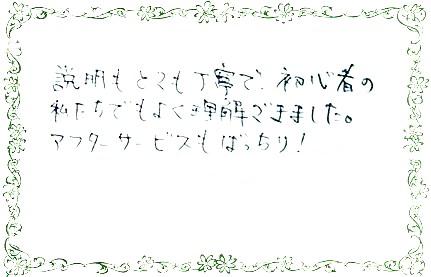 説明もとても丁寧で、初心者の
私たちでもよく理解できました。
アフターサービスもばっちり！